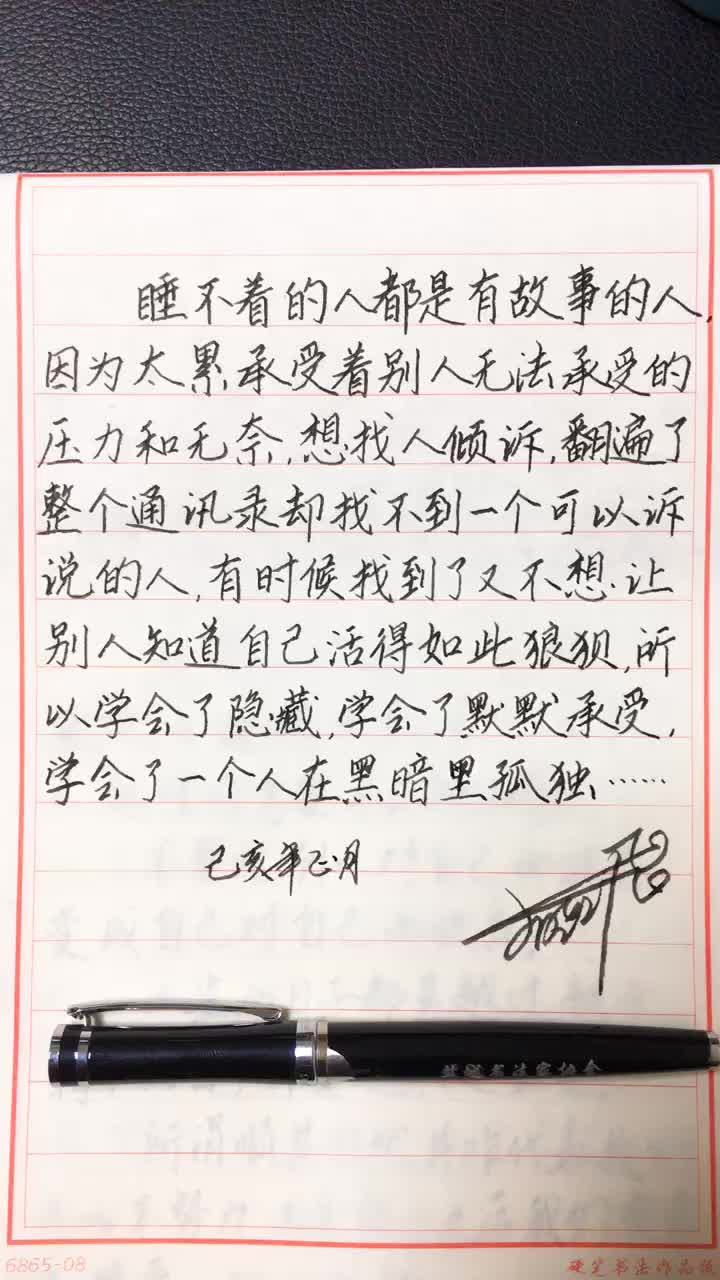 睡不着的人都是有故事的人,
因为太累承受着别人无法承受的
压力和无奈,想找人倾诉,翻遍了
整个通讯录却找不到一个可以诉
说的人,有时候找到了又不想让
别人知道自己活得如此狼狈,所
以学会了隐藏,学会了默默承受,
学会了一个人在黑暗里孤独……
己亥年正月
书法家协会
6865-08
硬笔书法作品纸